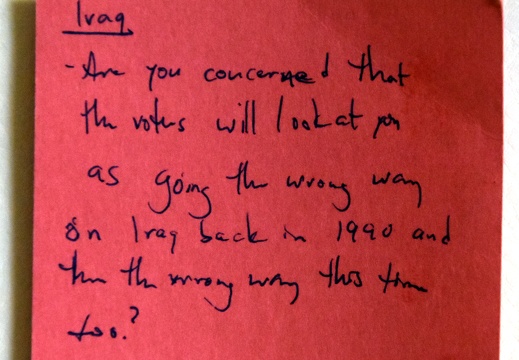 Iraq
- Are you concerned that
the voters will look at you
as going the wrong way
on Iraq back in 1990 and
then the wrong way this time
too.?